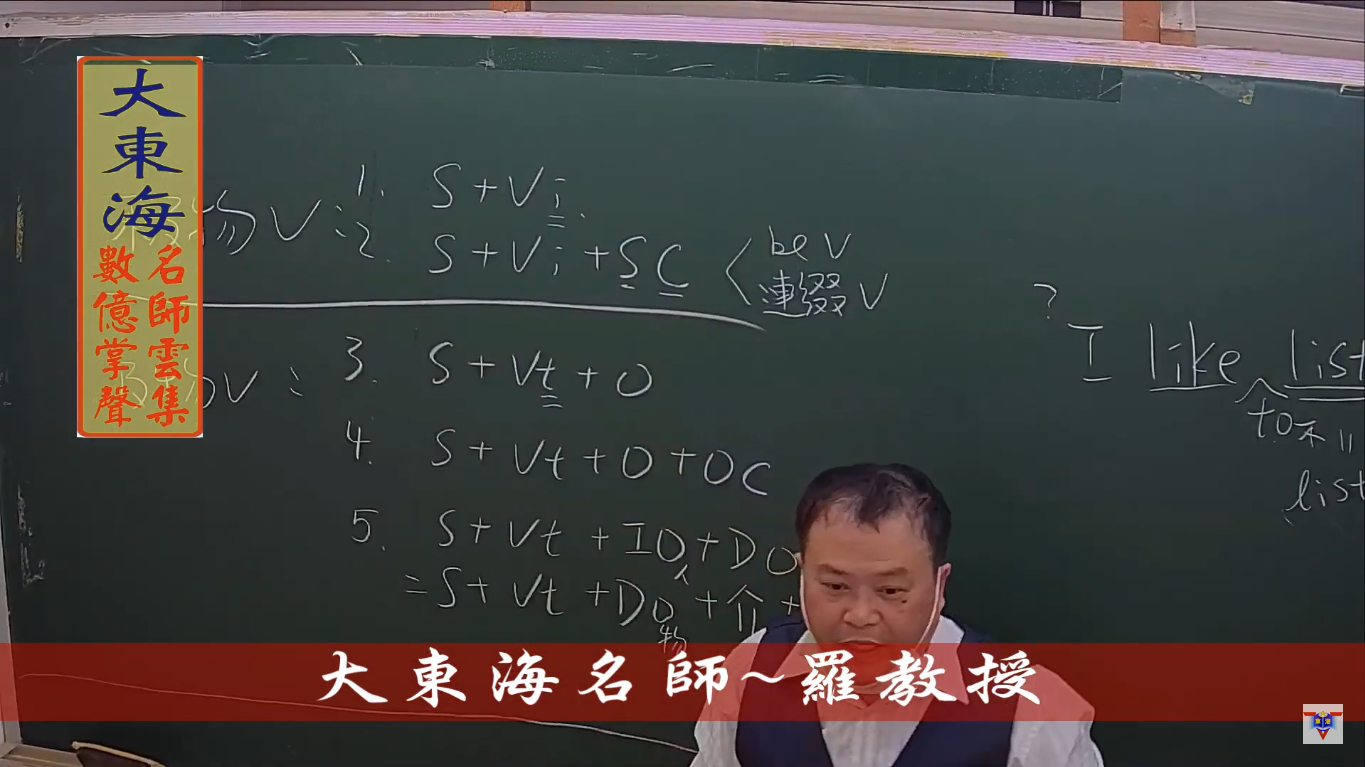 大東海
名師雲集
數億掌聲
物V:
1. S+Vi.
2. S+Vi+SC
be V
連綴V
V:
3. S+Vt+O
4. S+Vt+O+OC
5. S+Vt+IO+DO
人
=S+Vt+DO+介+
物
?
I like list
to不
list
大東海名師~羅教授